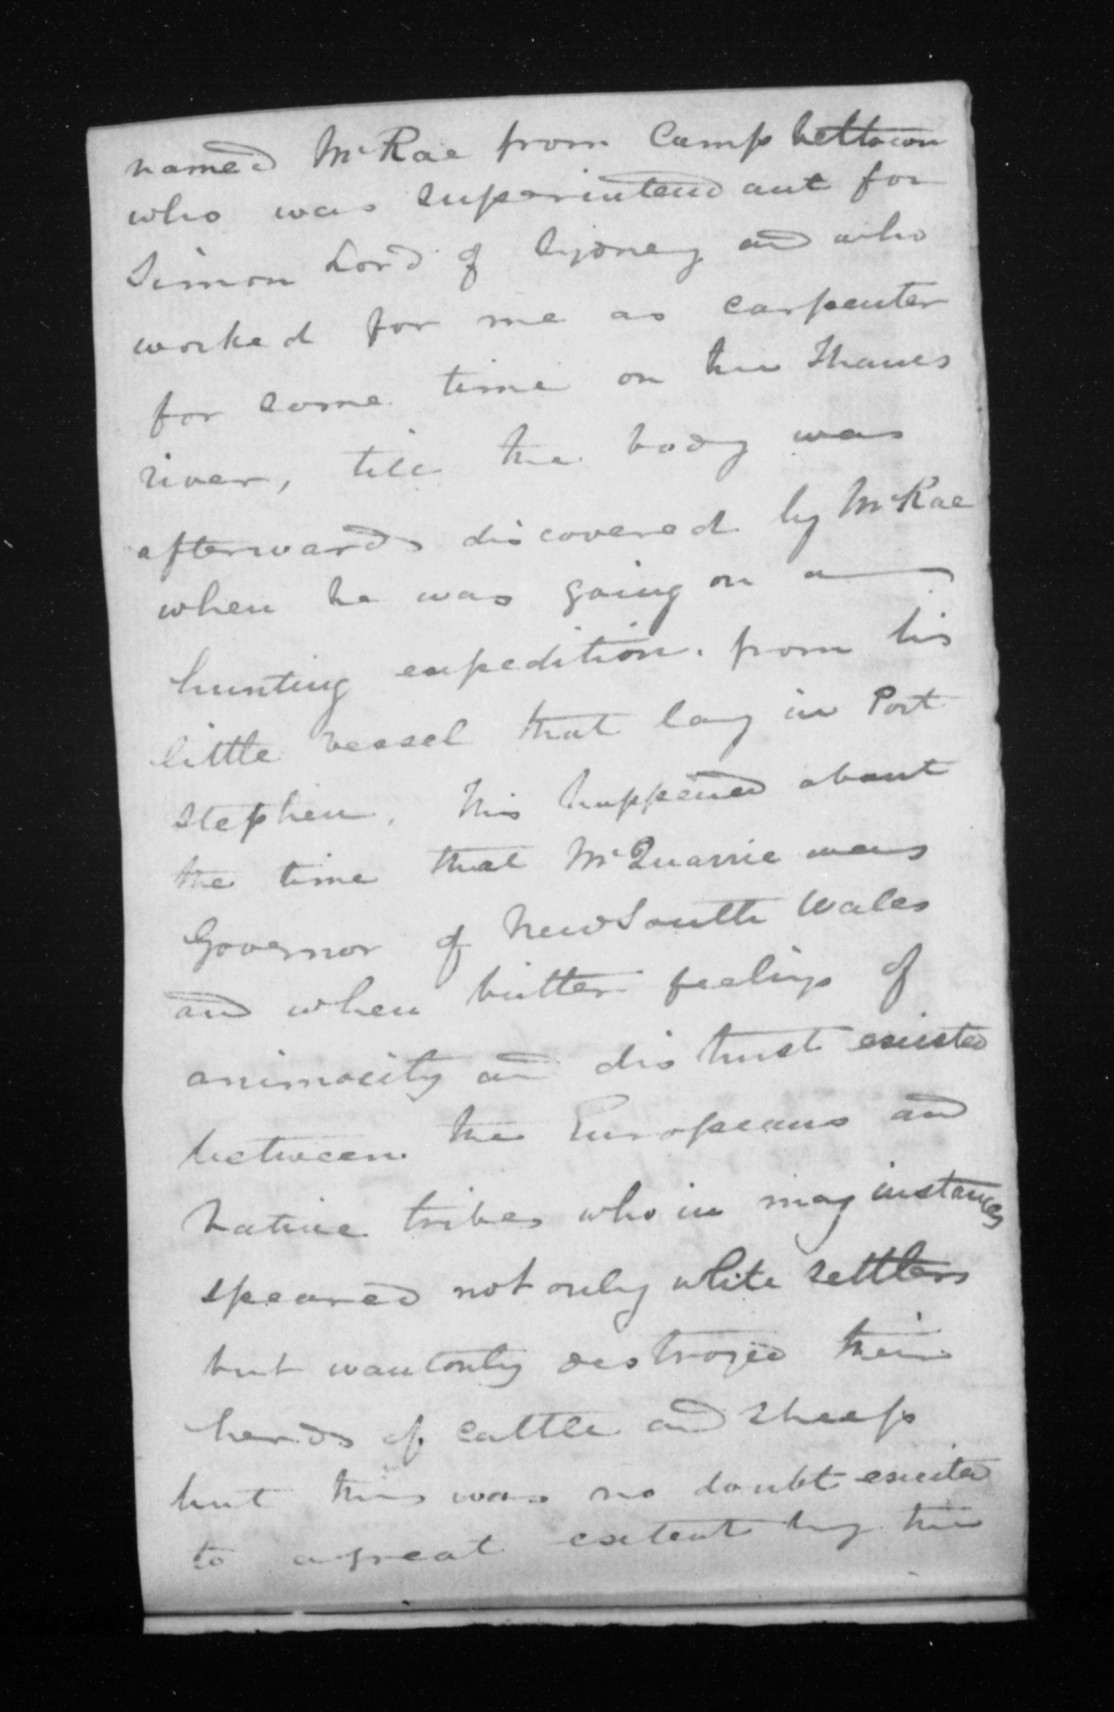 named McRae from Campbelltown
who was superintendant for
Simon Lord of Sydney and who
worked for me as carpenter
for some time on the Thames
river, till the body was
afterwards discovered by McRae
when he was going on a
hunting expedition. from his
little vessel that lay in Port
Stephen. This happened about
the time that McQuarrie was
Governor of New South Wales
and when bitter feelings of
animosity and distrust existed
between the Europeans and
Native tribes who in may instances
speared not only white settlers
but wantonly destroyed their
herds of cattle and sheep
but this was no doubt excited
to a great extent by the